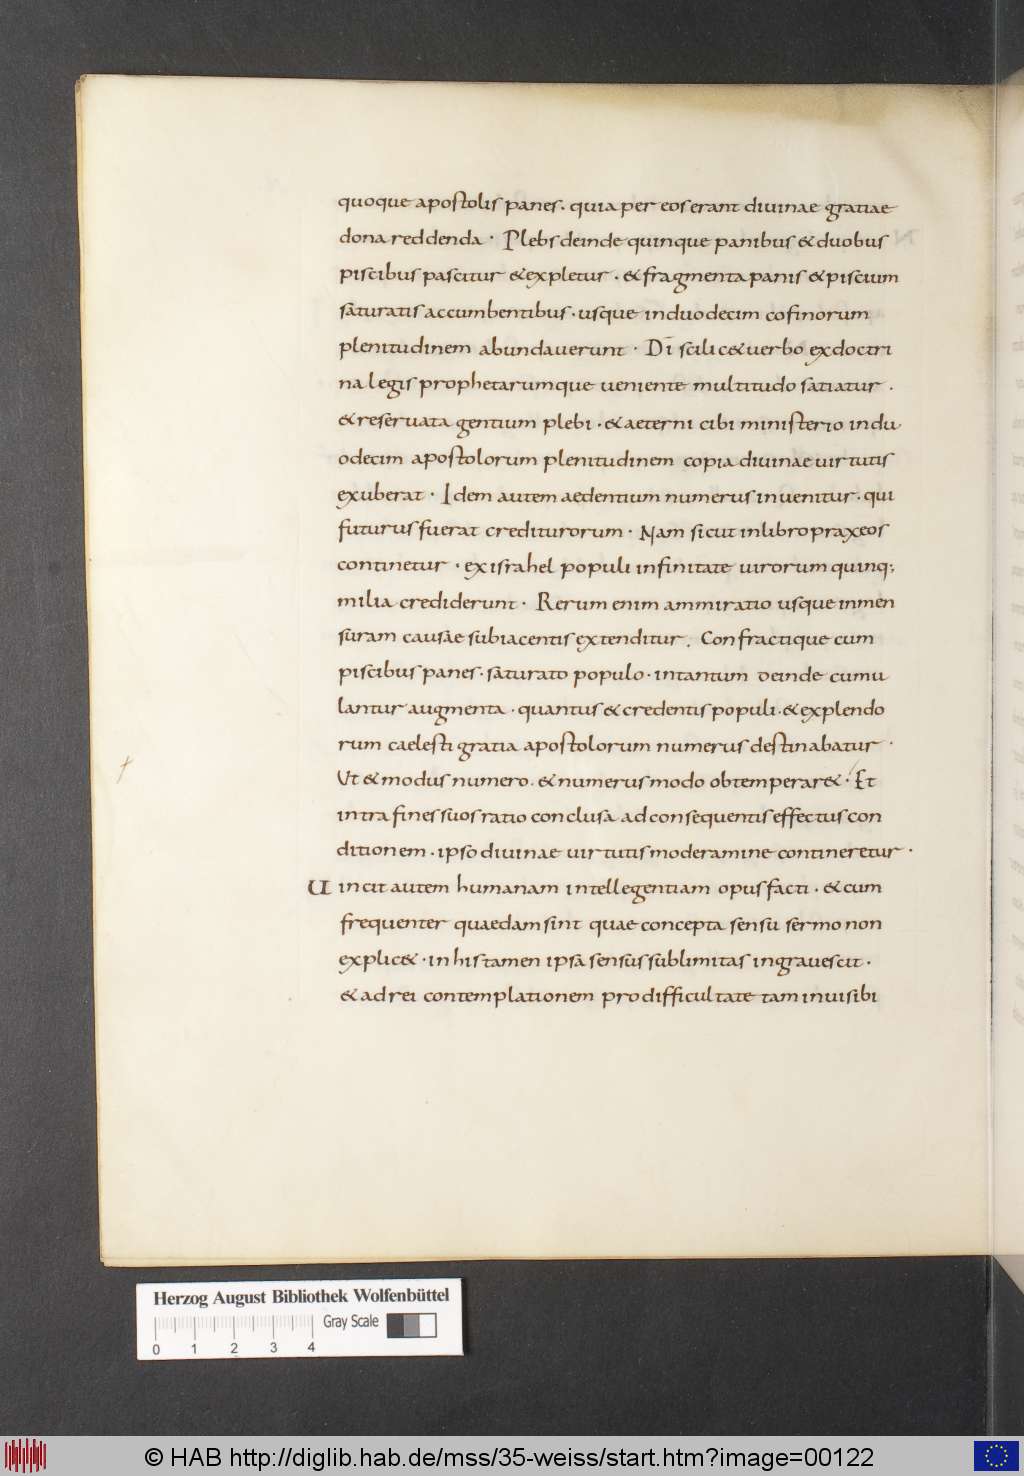 quoque apostolis panes. quia per eos erant diuinae gratiae
dona reddenda · Plebs deinde quinque panibus & duobus
piscibus pascitur & expletur · & fragmenta panis & piscium
saturatis accumbentibus · usque in duodecim cofinorum
plenitudinem abundauerunt · Dī scilic& uerbo ex doctri
na legis prophetarumque ueniente multitudo satiatur ·
& reseruata gentium plebi · & aeterni cibi ministerio in du
odecim apostolorum plenitudinem copia diuinae uirtutis
exuberat · Idem autem aedentium numerus inuenitur · qui
futurus fuerat crediturorum · Nam sicut in libro praxeos
continetur · ex israhel populi infinitate uirorum quinq;
milia crediderunt · Rerum enim ammiratio usque in men
suram causae subiacentis extenditur. Confractique cum
piscibus panes · saturato populo · in tantum deinde cumu
lantur augmenta · quantus & credentis populi · & explendo
rum caelesti gratia apostolorum numerus destinabatur ·
Ut & modus numero. & numerus modo obtemperar& · Et
intra fines suos ratio conclusa ad consequentis effectus con
ditionem · ipso diuinae uirtutis moderamine contineretur ·
Uincit autem humanam intellegentiam opus facti · & cum
frequenter quaedam sint quae concepta sensu sermo non
explic& · in his tamen ipsa sensus sublimitas ingrauescit ·
& ad rei contemplationem pro difficultate tam inuisibi
Herzog August Bibliothek Wolfenbüttel
Gray Scale
0 1 2 3 4
© HAB http://diglib.hab.de/mss/35-weiss/start.htm?image=00122